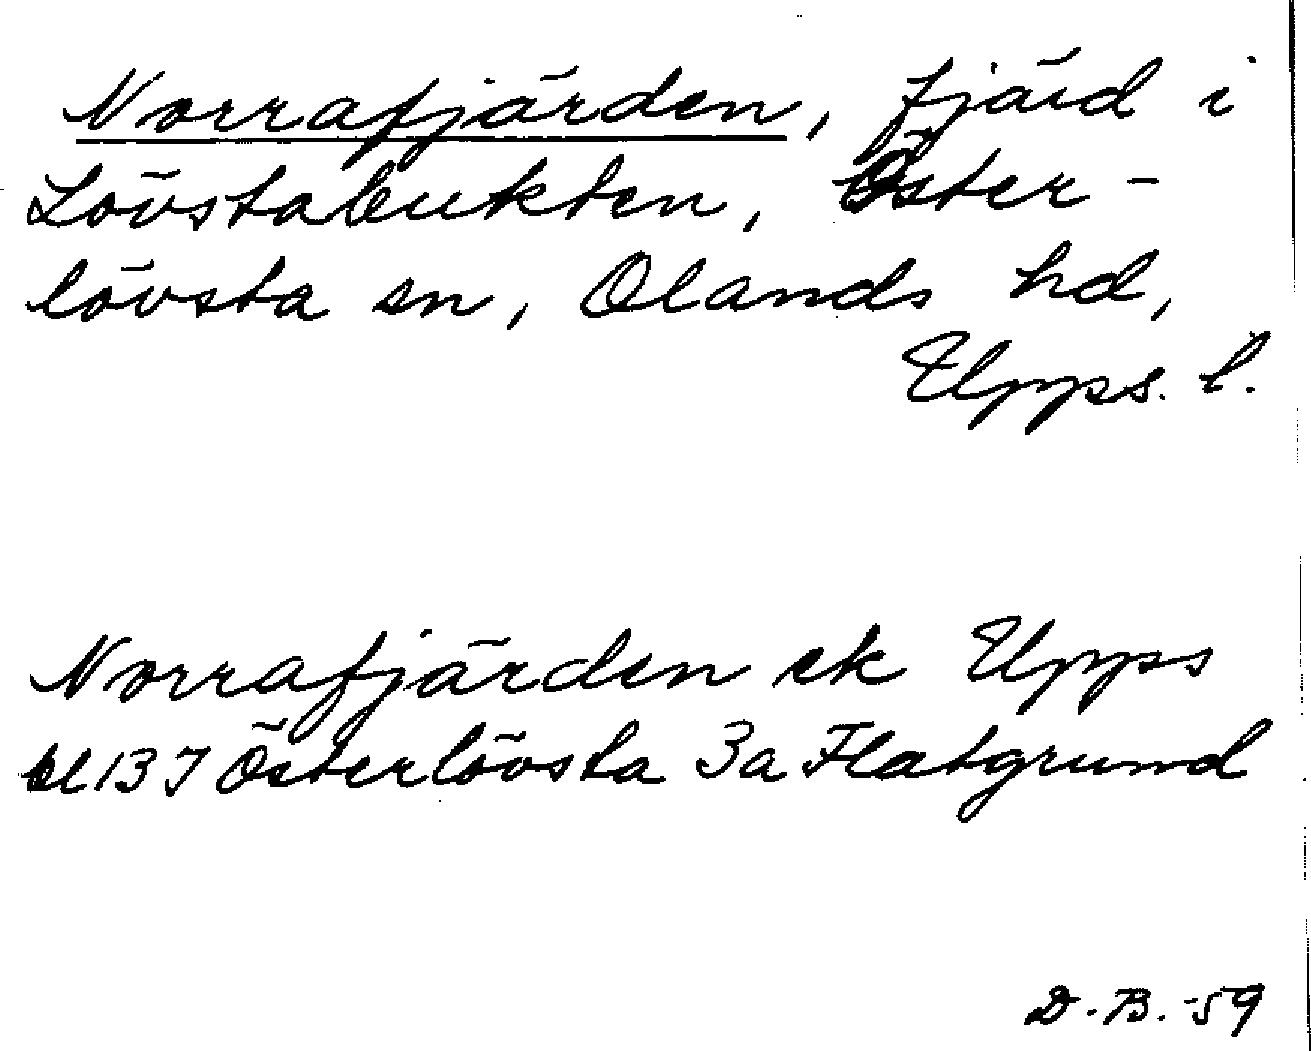 Norrafjärden, fjärd i
Lövstabukten, Öster-
lövsta sn, Olands hd,
Upps. l.
Norrafjärden ek Upps
bl 137 Österlövsta 3a Flatgrund
D.B. -59